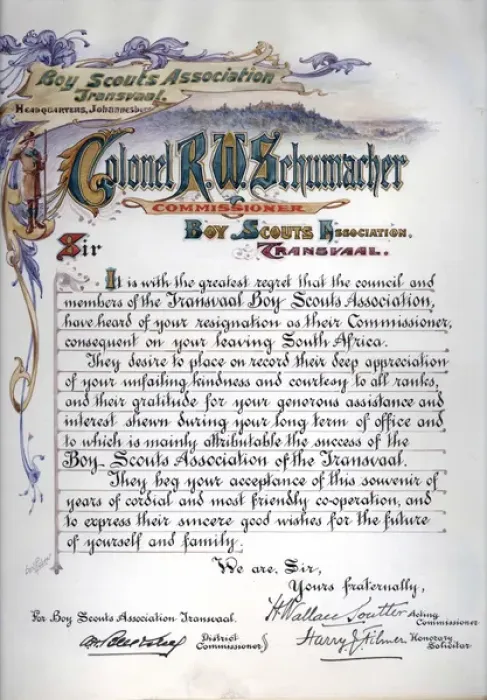 Boy Scouts Association
Transvaal.
Headquarters, Johannesburg
Colonel R.W. Schumacher
COMMISSIONER
Boy Scouts Association.
Transvaal.
Sir
It is with the greatest regret that the council and
members of the Transvaal Boy Scouts Association,
have heard of your resignation as their Commissioner,
consequent on your leaving South Africa.
They desire to place on record their deep appreciation
of your unfailing kindness and courtesy to all ranks,
and their gratitude for your generous assistance and
interest shewn during your long term of office and
to which is mainly attributable the success of the
Boy Scouts Association of the Transvaal.
They beg your acceptance of this souvenir of
years of cordial and most friendly co-operation, and
to express their sincere good wishes for the future
of yourself and family.
We are, Sir,
Yours fraternally,
For Boy Scouts Association Transvaal.
H Wallace Soutter Acting Commissioner
District Commissioner
Harry J Filmer Honorary Solicitor